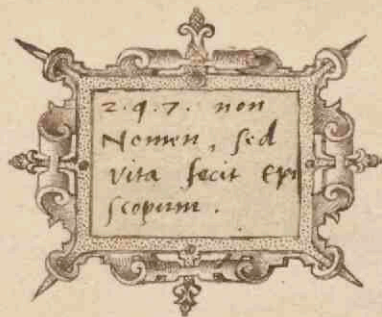 2.q.7. non
Nomen, sed
vita fecit Epi
scopum.